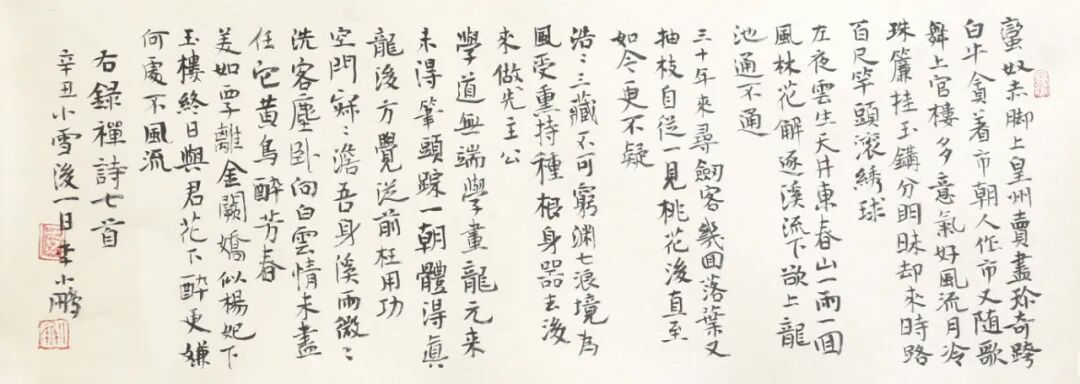 蠻奴赤脚上皇州賣盡珍奇跨
白牛貪着市朝人作市又隨歌
舞上官樓多意氣好風流月冷
珠簾挂玉鉤分明昧却來時路
百尺竿頭滚綉球
左夜雲生天井東春山一雨一回
風林花解逐溪流下欲上龍
池通不通
三十年來尋劒客幾回落葉又
抽枝自從一見桃花後直至
如今更不疑
浩〻三藏不可窮渊七浪境為
風受熏持種根身器去後
來做先主公
學道無端學畫龍元来
未得筆頭踪一朝體得真
龍後方覺從前枉用功
空門寂〻澹吾身溪雨微〻
洗客塵卧向白雲情未盡
任它黄鳥醉芳春
美如西子離金闕嬌似楊妃下
玉樓終日與君花下醉更嫌
何處不風流
右録禪詩七首
辛丑小雪後一日李小鵬